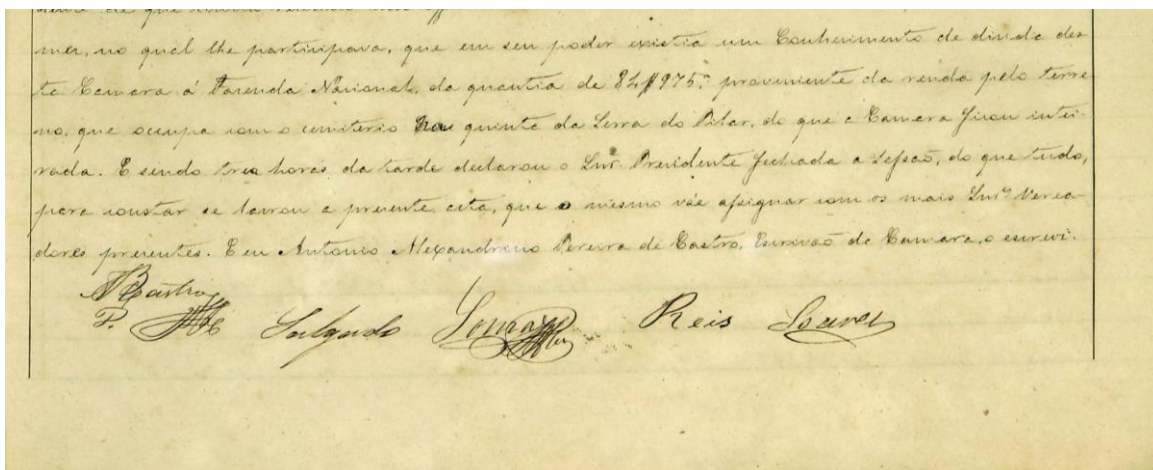 mea, no qual lhe participava, que em seu poder existia um Conhecimento de divida des-
ta Camara á Fasenda Nacional, da quantia de 84$975, proveniente da renda pelo terre-
no, que occupa com o cemiterio na quinta da Serra do Pilar, do que a Camara ficou intei-
rada. E sendo tres horas da tarde declarou o Snr. Presidente fechada a Sessaõ, do que tudo,
para constar se lavrou a presente acta, que o mesmo váe assignar com os mais Snrs. Verea-
dores presentes. E eu Antonio Alexandrino Pereira de Castro, Escrivaõ da Camara, o escrevi.
Castro
P. Salgado Reis Soares